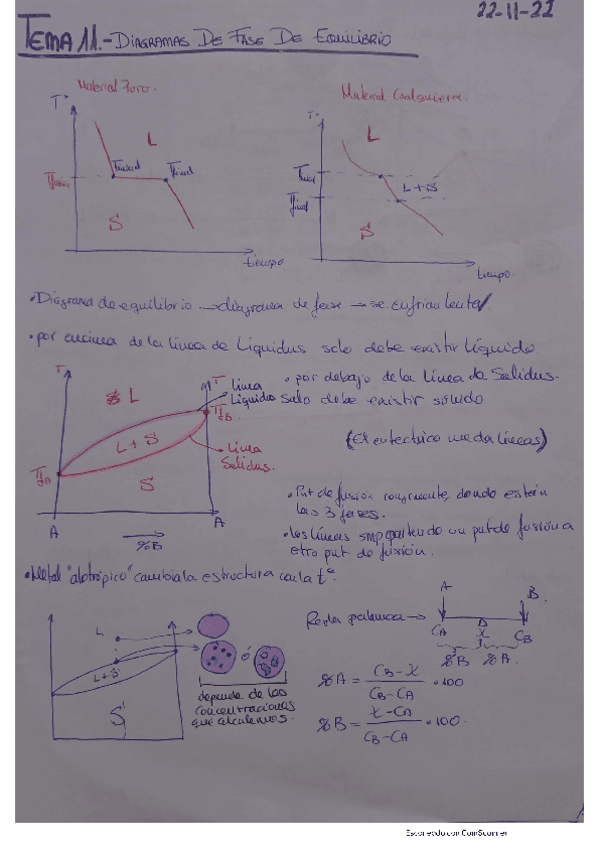 22-11-22
TEMA 11.- DIAGRAMAS DE FASE DE EQUILIBRIO
Material Puro.
Material Cualquiera.
T°
T°
L
L
Tinicial
Tfinal
Tfusion
Tinicial
L+S
Tfinal
S
S
tiempo
tiempo.
• Diagrama de equilibrio → diagrama de fase → se enfrian lenta/
• por encima de la línea de Liquidus solo debe existir líquido
T
T
L
línea
Líquidus
• por debajo de la línea de Solidus.
solo debe existir sólido
TfB
L+S
Línea
Solidus.
TfA
S
(El eutectico une da líneas)
• Pnt de fusión congruente, donde están
las 3 fases.
• Las líneas smp parten de un pnt de fusión a
otro pnt de fusión.
A
A
→
%B
• Metal "alotrópico" cambia la estructura con la t°.
L
L+S
S
ó
depende de las
concentraciones
que calculemos.
Regla palanca →
A
B
CA
X
CB
%B
%A
%A = CB-X / CB-CA • 100
%B = X-CA / CB-CA • 100.
Escaneado con CamScanner